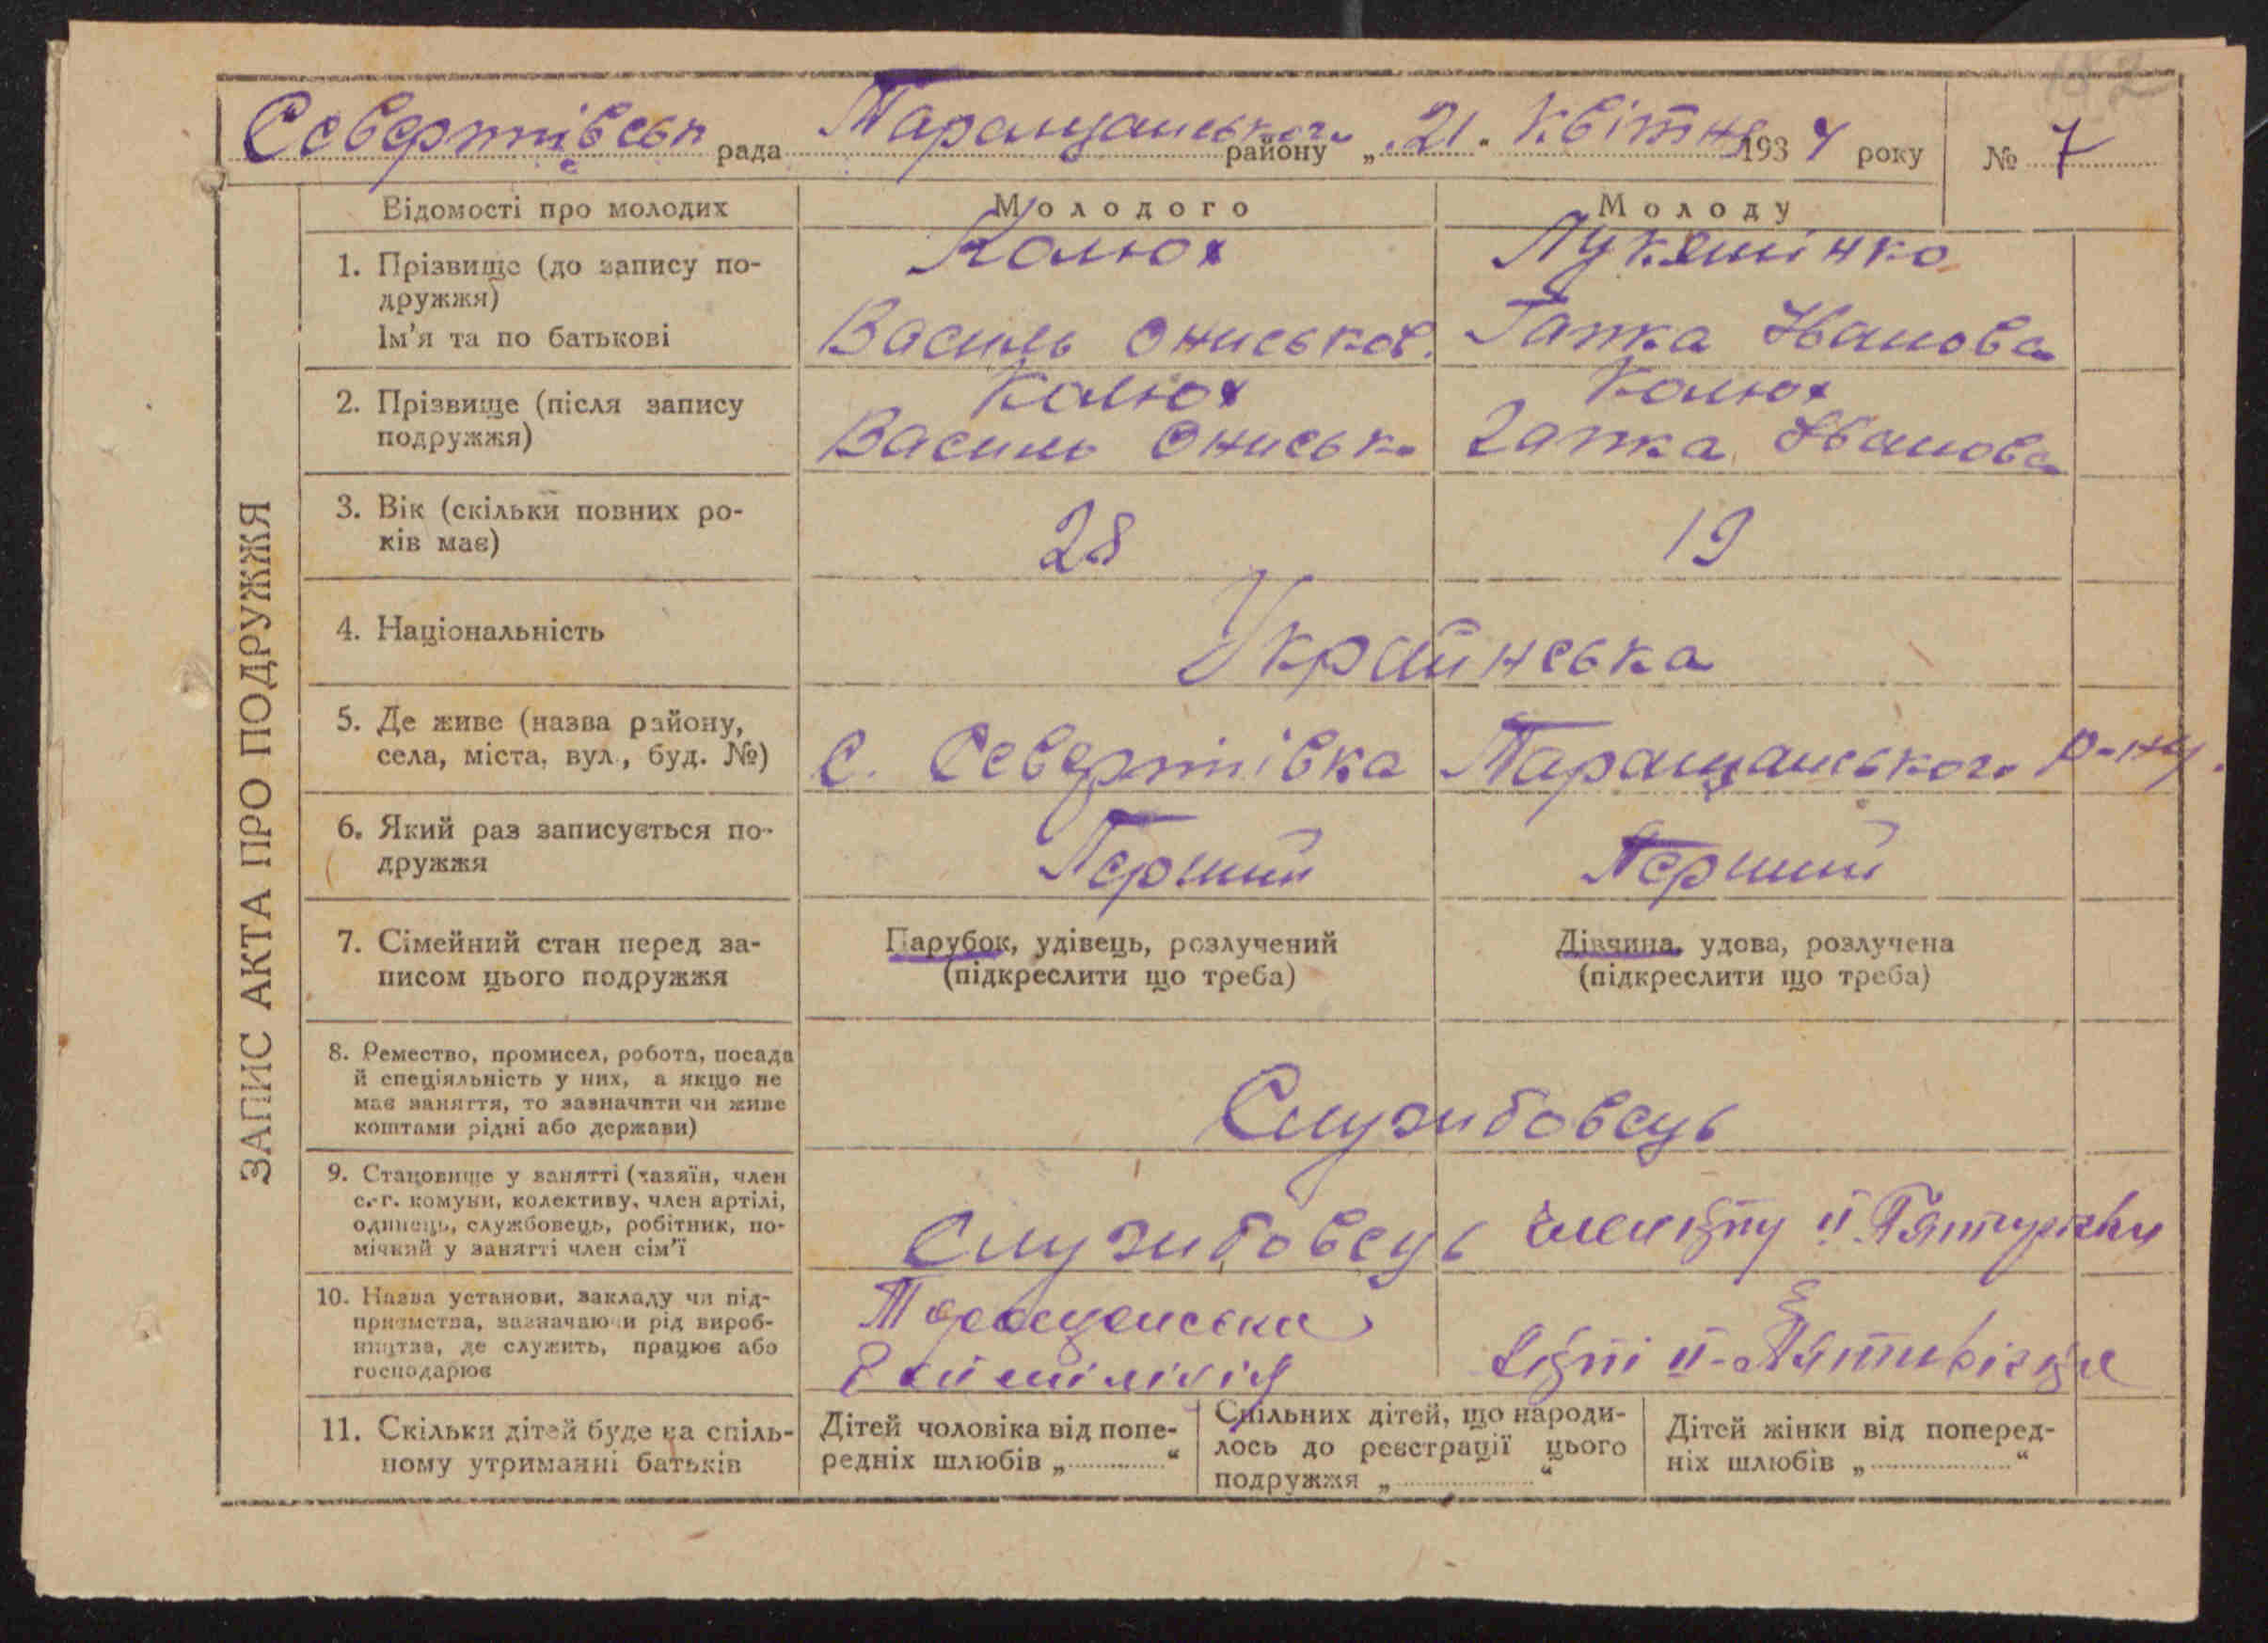 182
Севертівськ рада Таращанського району „ 21 " Квітня 1934 року № 7
ЗАПИС АКТА ПРО ПОДРУЖЖЯ
Відомості про молодих
Молодого
Молоду
1. Прізвище (до запису по-
дружжя)
Ім'я та по батькові
Калюх
Василь Ониськов.
Гапка Іванова
2. Прізвище (після запису
подружжя)
Калюх
Василь Ониськ
Калюх
Гапка Іванова
3. Вік (скільки повних ро-
ків має)
28
19
4. Національність
Українська
5. Де живе (назва району,
села, міста, вул., буд. №)
с. Севертівка Таращанського р-ну.
6. Який раз записується по-
дружжя
Перший
Перший
7. Сімейний стан перед за-
писом цього подружжя
Парубок, удівець, розлучений
(підкреслити що треба)
Дівчина, удова, розлучена
(підкреслити що треба)
8. Ремество, промисел, робота, посада
й спеціяльність у них, а якщо не
має заняття, то зазначити чи живе
коштами рідні або держави)
Службовець
9. Становище у занятті (хазяїн, член
с.-г. комуни, колективу, член артілі,
одинець, службовець, робітник, по-
мічний у занятті член сім'ї
Службовець
10. Назва установи, закладу чи під-
приємства, зазначаючи рід вироб-
ництва, де служить, працює або
господарює
Таращанська
11. Скільки дітей буде на спіль-
ному утриманні батьків
Дітей чоловіка від попе-
редніх шлюбів „ "
Спільних дітей, що народи-
лось до реєстрації цього
подружжя „ "
Дітей жінки від поперед-
ніх шлюбів „ "